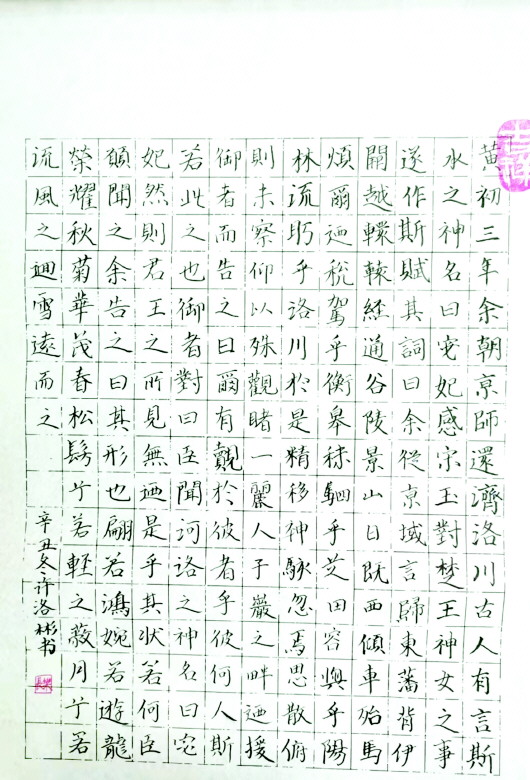 黄初三年余朝京師還濟洛川古人有言斯
水之神名曰宓妃感宋玉對楚王神女之事
遂作斯賦其詞曰余從京域言歸東藩背伊
闕越轘轅經通谷陵景山日既西傾車殆馬
煩爾迺税駕乎衡皋秣駟乎芝田容與乎陽
林流眄乎洛川於是精移神駭忽焉思散俯
則未察仰以殊觀睹一麗人于巖之畔迺援
御者而告之曰爾有覿於彼者乎彼何人斯
若此之也御者對曰臣聞河洛之神名曰宓
妃然則君王之所見無迺是乎其状若何臣
願聞之余告之曰其形也翩若鴻婉若遊龍
榮耀秋菊華茂春松髣兮若輕之蔽月兮若
流風之迴雪遠而之
辛丑冬许洛彬书